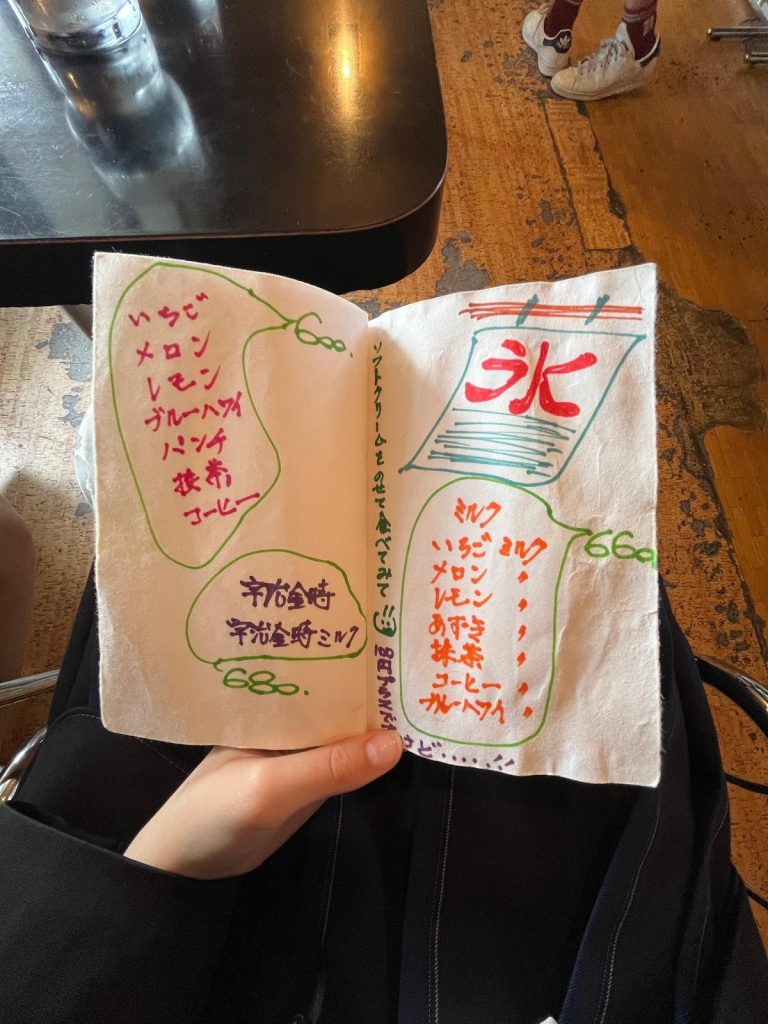 いちご
メロン
レモン
ブルーハワイ
パンチ
抹茶
コーヒー
600.
宇治金時
宇治金時ミルク
680.
ソフトクリームをのせて食べてみて
けど.....!!
氷
ミルク
いちごミルク
メロン 〃
レモン 〃
あずき 〃
抹茶 〃
コーヒー 〃
ブルーハワイ 〃
660